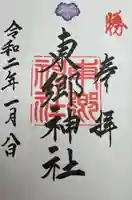 勝
奉拝
東郷神社
東郷神社
令和二年一月八日